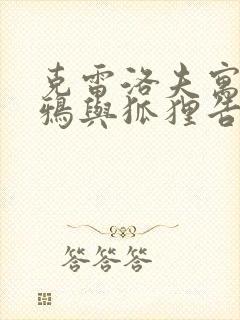 克雷洛夫寓
鴉與狐狸告
答答答